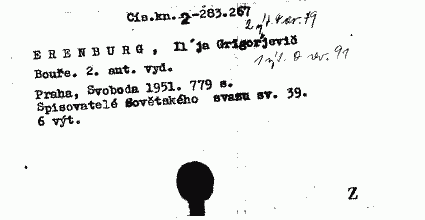 Čís.kn. 2-283.267
2 výt.
ERENBURG, Il´ja Grigorjevič
1 výt. O rev. 91
Bouře. 2. aut. vyd.
Praha, Svoboda 1951. 779 s.
Spisovatelé Sovětského svazu sv. 39.
6 výt.
Z